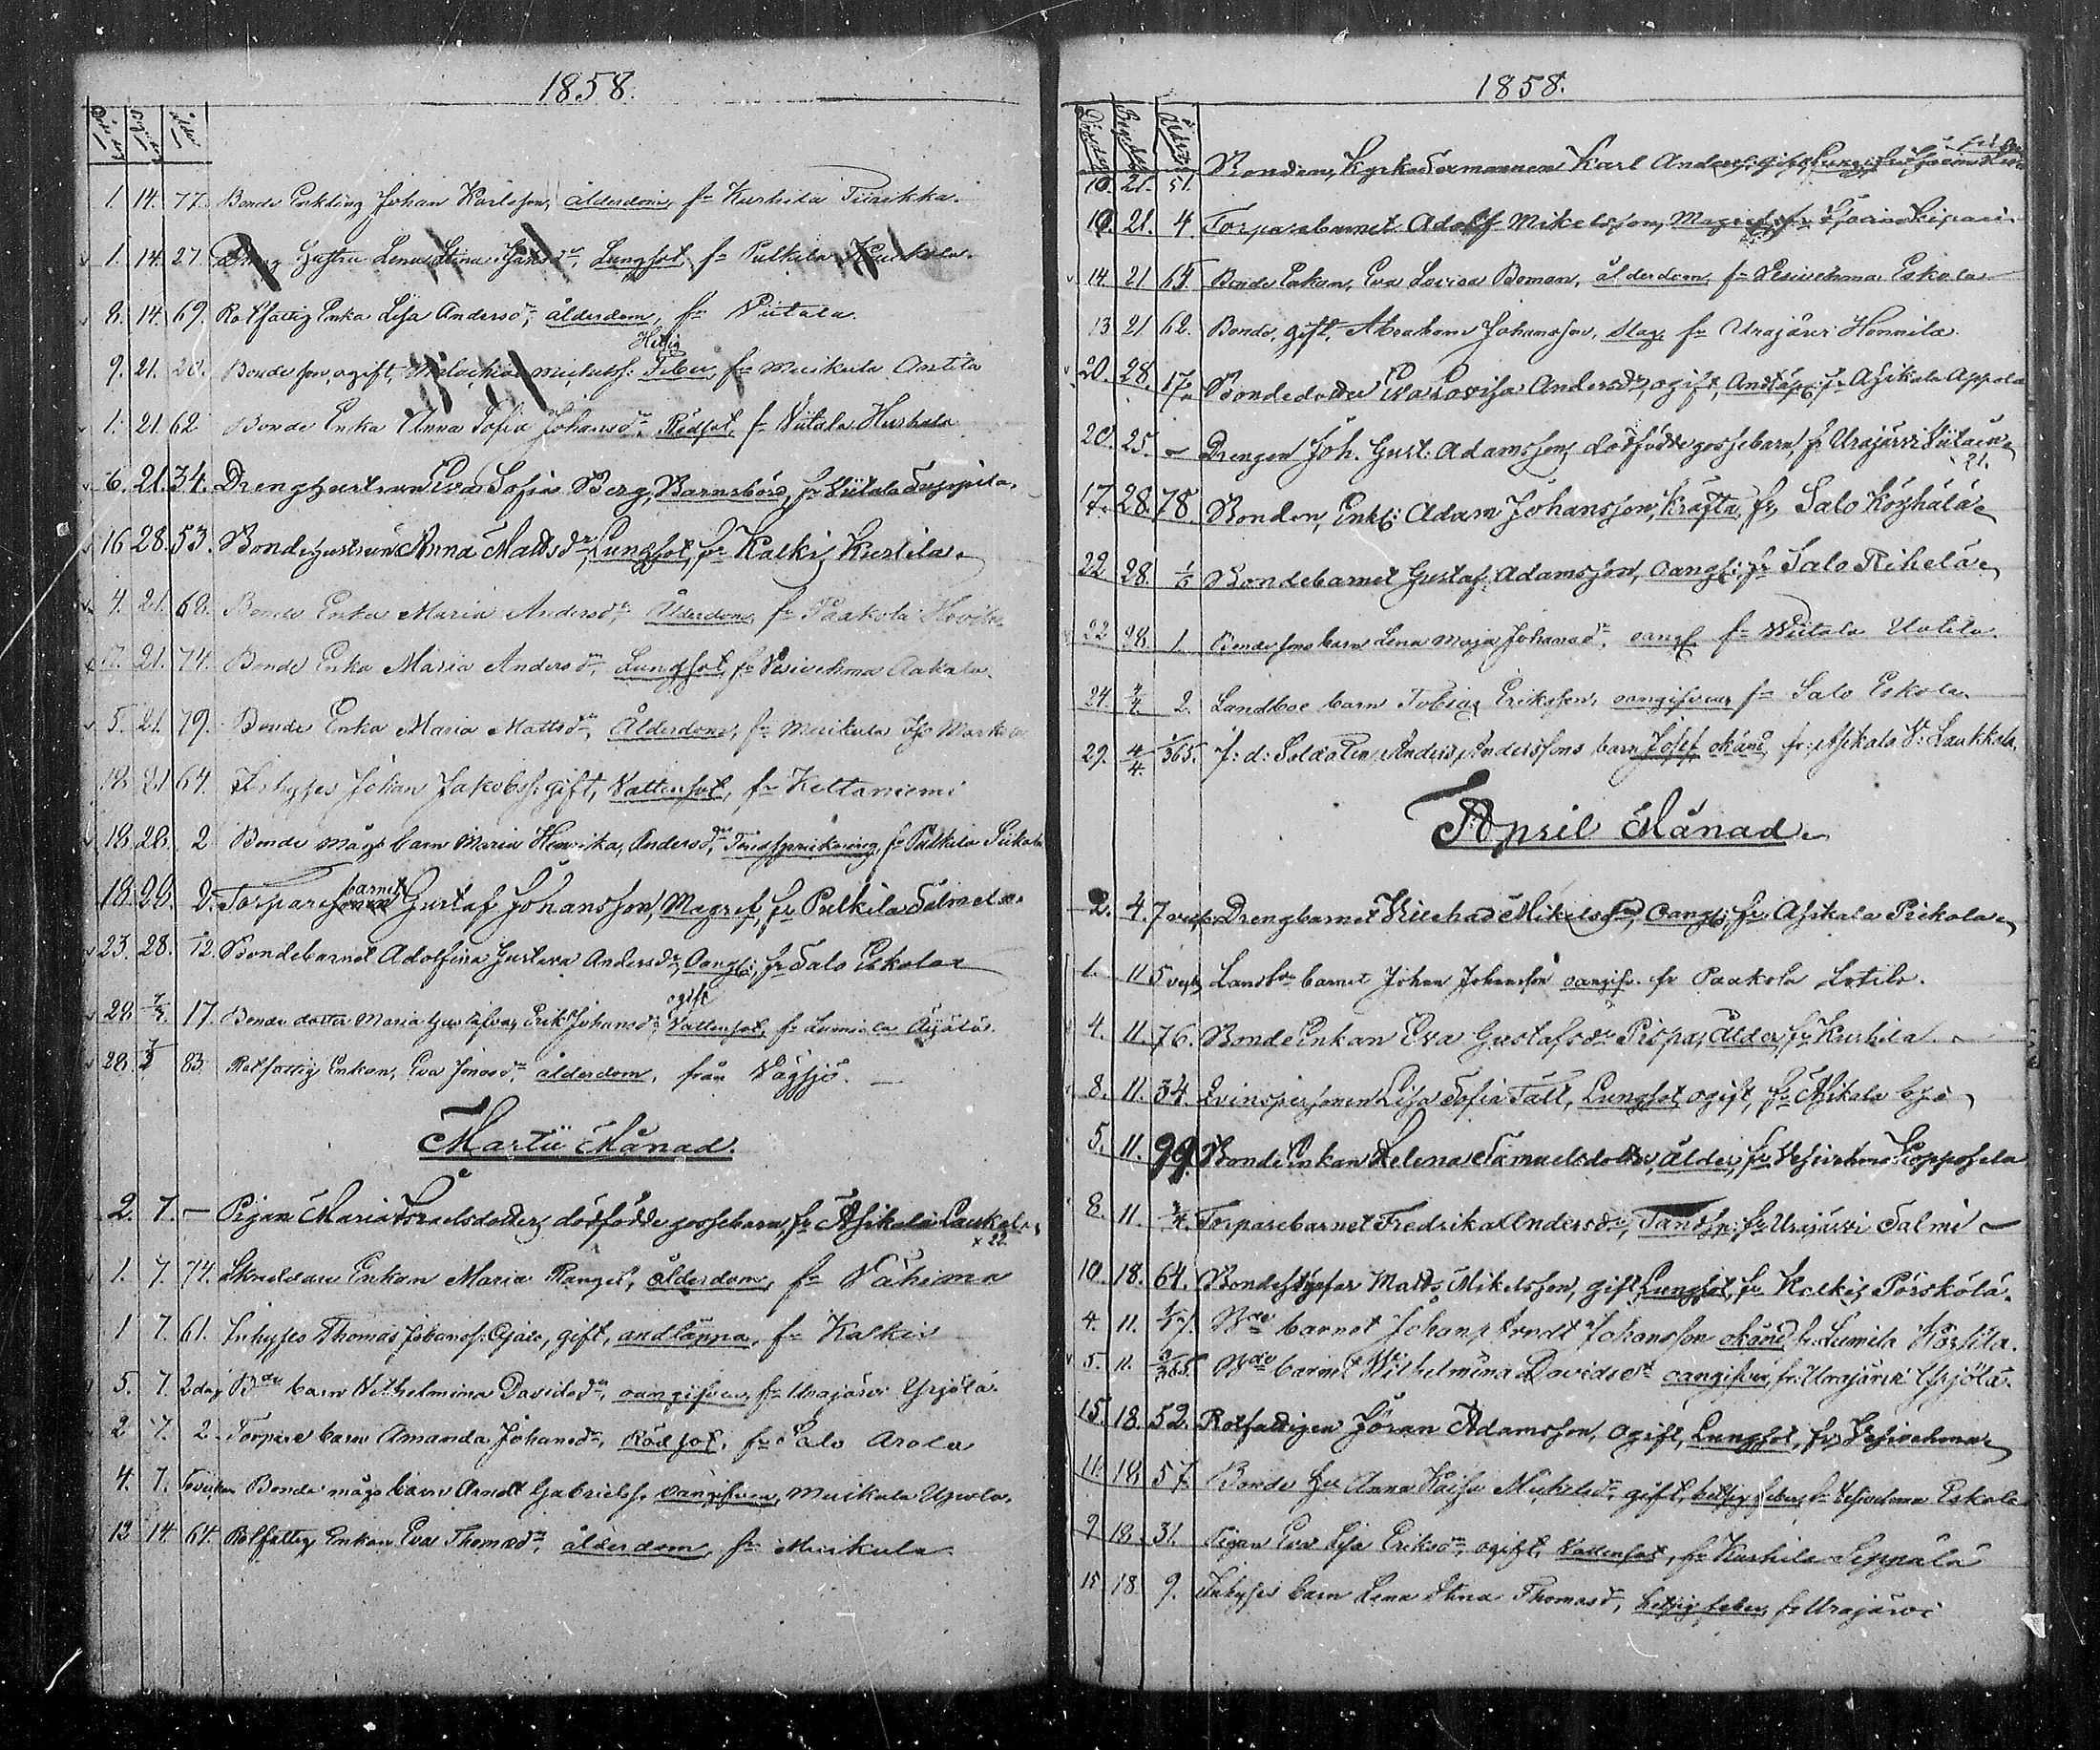 1858.
1. 14. 77. Bonde Enkling Johan Karlsson, ålderdom, fr Kurhila Tiirikka.
1. 14. 27. Dräng Hustru Lena Stina Johansdr, Lungsot, fr Pulkila
8. 14. 69. Rotfattig Enka Lisa Andersdr, ålderdom, fr Viitala.
Hetsig
9. 21. 20. Bonde son, ogift, Malachias Michelss: Feber, fr Muikula Antila
1. 21. 62 Bonde Enka Anna Sofia Johansdr, Rödsot, fr Viitala Huhtala
6. 21. 34. Drenghustrun Eva Sofia Berg, Barnsbörd, fr Viitala Seppila.
16 28. 53. Bondehustrun Anna Mattsdr, Lungsot, fr Kalkis, Kurtila.
4. 21. 68. Bonde Enka Maria Andersdr, Ålderdom, fr Paakola Hovila.
17. 21. 74. Bonde Enka Maria Andersdr, Lungsot, fr Vesivehma Aakala.
5. 21. 79. Bonde Enka Maria Mattsdr, Ålderdom, fr Muikula Iso Markula
18. 21 64. Inhyses Johan Jakobss: gift, Vattensot, fr Keltaniemi
18. 28. 2 Bonde mågs barn Maria Henrika, Andersdr, Tandsprickning, fr Pulkila
barnet
18. 28. 2. Torpare Gustaf Johansson, Magref, fr Pulkila
23. 28. 12. Bondebarnet Adolfina Gustava Andersdr, Oangif: fr Salo Eskola
ogift
28. 17. Bonde dotter Maria Gustafva, Erik Johansdr, Vattensot, fr Lumiala Äijälä.
28. 83. Rotfattig Enkan, Eva Jonasdr, ålderdom, från Vägsjö.
Martii Månad.
2. 7. — Pigan Maria Israelsdotter, dödfödde gossebarn, fr Asikala Laukala,
× 22
1. 7. 74. Skräddare Enkan Maria Ranges, ålderdom, fr Vähimaa
1 7. 61. Inhyses Thomas Johanss: Ojala, gift, andtäppa, fr Kalkis
5. 7. 2 dag Bde barn Vilhelmina Davidsdr, oangifven, fr Urajärvi Yrjölä.
2 7. 2. Torpare barn Amanda Johansdr, Rödsot, fr Salo Arola
4. 7. 5 veckor Bonde mågs barn Arndt Gabrielss. oangifven, Muikula Upola.
12 14 64. Rotfattig Enkan Eva Thomasdr, ålderdom, fr Muikula
1858.
Dödsdag Begr: dag Ålder
10. 21. 51. Bonden, Kyrkosexmannen Karl Anderss: gift, Lungs: fr
10. 21. 4. Torparebarnet Adolf Mikelsson, Magref, fr
14. 21 65. Bonde Enkan, Eva Lovisa Boman, ålderdom, fr Vesivehma Eskola
13 21 62. Bonde, gift, Abraham Johansson, slag, fr Urajärvi Honnila
20. 28. 17. Bondedotter Eva Lovisa Andersdr, ogift, Andtäp: fr Asikala Appola
20. 25. — Drengen Joh. Gust: Adamsson, dödfödde gossebarn, fr Urajärvi
21.
17. 28. 78. Bonden, Enkl: Adam Johansson, Kräfta, fr Salo Köyhälä
22 28. Bondebarnet Gustaf, Adamsson, oangif: fr Salo Rihelä
22 28. 1 Bonde sons barn Lena Maja Johansdr, oangf. fr Viitala Uotila.
24. 4/4. 2. Landboe barn Tobias Eriksson, oangifven fr Salo Eskola
29. 4/4. 1/365. f: d: Soldaten Anders Anderssons barn Josef, okänd, fr: Asikala V: Laukkala.
April Månad
2. 4. 7 veck. Drengbarnet Mikelsson, oangif: fr Asikala Peikola
1. 11 5 veck Landb barnet Johan Johansson oangifv. fr Paakola Lotila.
4. 11. 76. Bonde Enkan Eva Gustafsdr Pispa, Ålder, fr Kurhila.
8. 11. 34. Qvinspersonen Lisa Sofia Tält, Lungsot, ogift, fr Asikala by
5. 11. 99. Bonde Enkan Helena Samuelsdotter, ålder, fr Vesivehma Kopposela
8. 11. Torparebarnet Fredrika Andersdr, Tandsp: fr Urajärvi Salmi
10. 18. 64. Bonde Inhyses Matts Mikelsson, gift, Lungsot, fr Kalkis Pörskölä.
4. 11. Bde barnet Johan Arndt Johansson okänd, fr Lumiala
5. 11. 3/365 Bde barnet Wilhelmina Davidsdr oangifven, fr: Urajärvi Yrjölä.
15. 18. 52. Rotfattigen Jöran Adamsson, ogift, Lungsot, fr Vesivehma
11. 18. 57. Bonde Hu Anna Kaisa Michelsdr, gift, hetsig feber, fr Vesivehma Eskola
9 18. 31. Pigan Eva Lisa Eriksdr, ogift, Vattensot, fr Kurhila Seppälä
15 18. 9. Inhyses barn Lena Stina Thomasdr, hetsig feber, fr Urajärvi